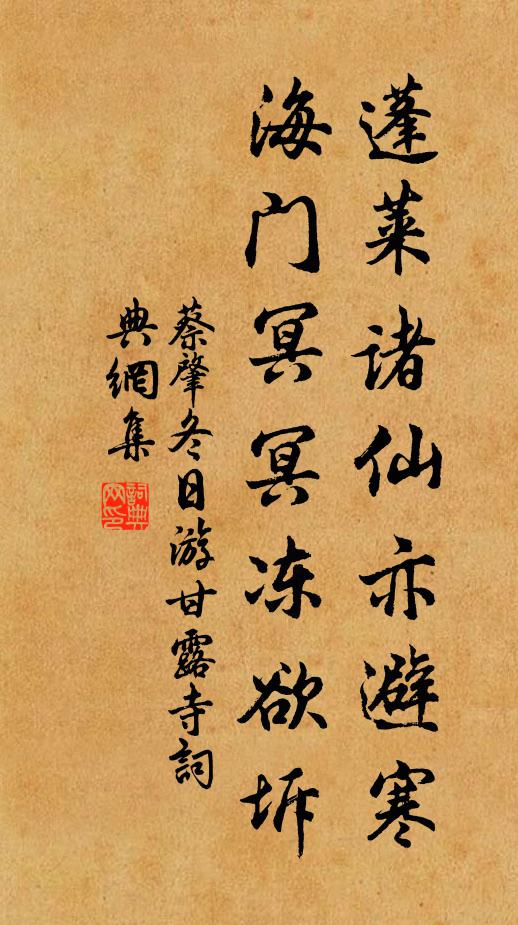 蓬莱诸仙亦避寒
海门冥冥冻欲坼
蔡肇冬日游甘露寺詞
典網集
詞典
网印